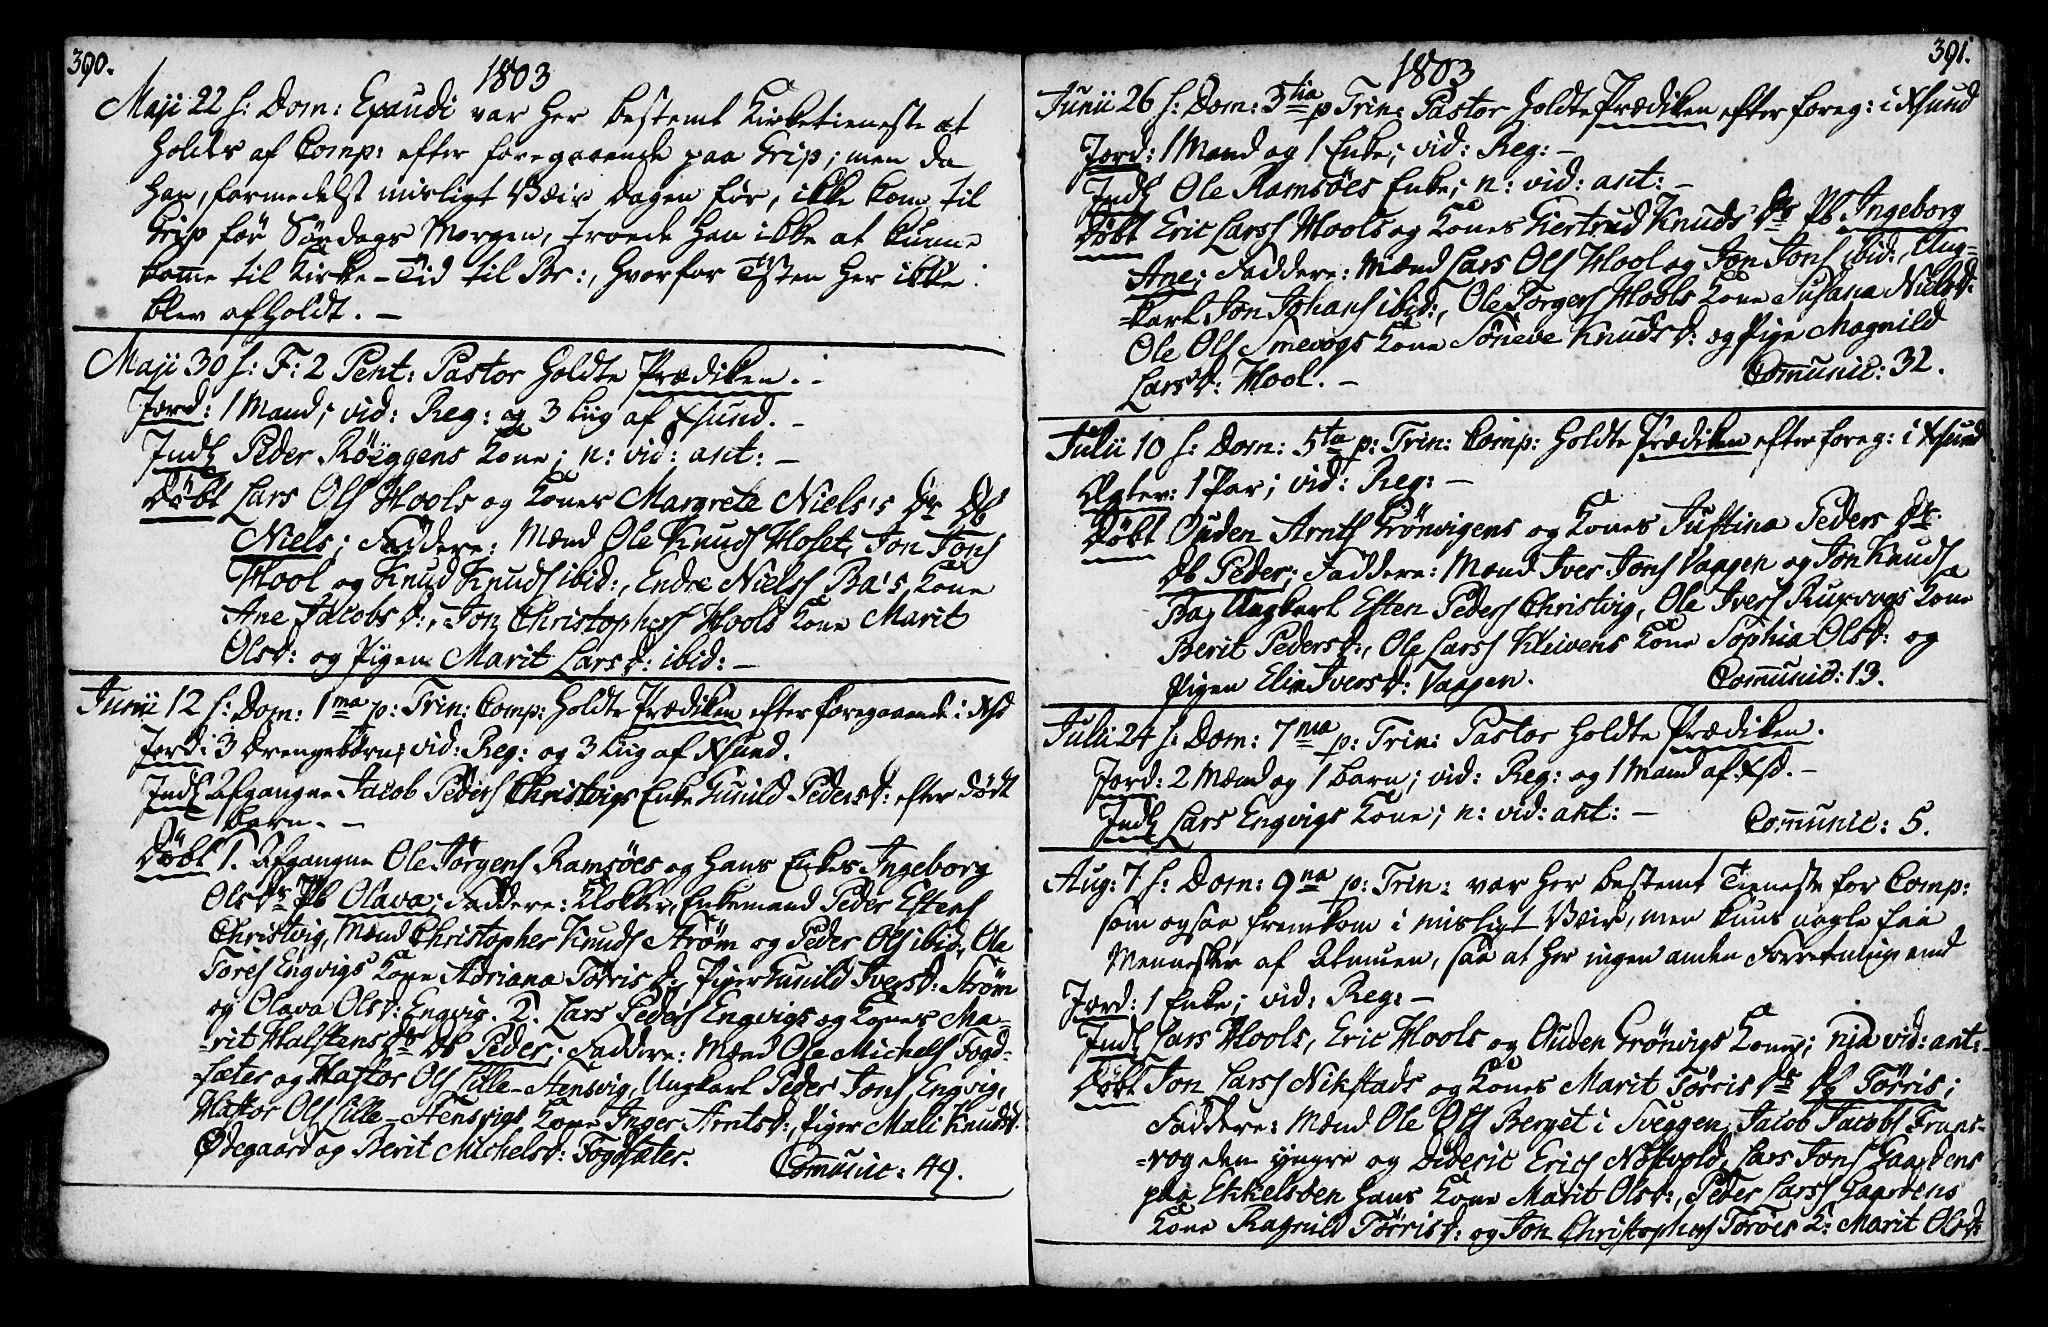 390.
1803
Maji 22 s: Dom: Exaudi var her bestemt Kirketieneste at
holdes af Comp: efter foregaaende paa Grip; men da
han, formedelst misligt Veir Dagen før, ikke kom til
Grip før Søndags Morgen, troede han ikke at kunne
komme til Kirke-Tid til Br:, hvorfor Tsten her ikke
blev afholdt. -
Maji 30 s: F: 2 Pent: Pastor holdte Prædiken. -
Jord: 1 Mand; vid: Reg: og 3 Liig af Xsund. -
Indl Peder Røeggens Kone; n: vid: ant: -
Døbt Lars Ols Hools og Kones Margrete Niels's Dr Db
Niels; Faddere: Mænd Ole Knuds Hoset, Jon Jons
Hool og Knud Knuds ibid:, Endre Nielss Ba's Kone
Ane Jacobsd:, Jon Christophers Hools Kone Marit
Olsd: og Pigen Marit Larsd: ibid: -
Junii 12 s: Dom: 1ma p: Trin: Comp: holdte Prædiken efter foregaaende i Xsd
Jord: 3 Drengebørn; vid: Reg: og 3 Liig af Xsund.
Indl Afgangne Jacob Peders Christvigs Enke Gunild Pedersd: efter dødt
barn. -
Døbt 1. Afgangne Ole Jørgens Ramsøes og hans Enkes Ingeborg
Ols Dr Pb Olava; Faddere: Klokker, Enkemand Peder Estens
Christvig, Mænd Christopher Knuds Strøm og Peder Ols ibid, Ole
Tores Engvigs Kone Adriana Tørrisd:, Piger Gunild Iversd: Strøm
og Olava Olsd: Engvig. 2. Lars Peders Engvigs og Kones Ma-
-rit Halstens Dr Db Peder; Faddere: Mænd Ole Michels Fogd-
-sæter og Hastor Ols Lille-Stensvig, Ungkarl Peder Jons Engvig,
Hastor Ols Lille-Stensvigs Kone Inger Arntsd:, Piger Mali Knudsd:
Ødegaard og Berit Michelsd: Fogdsæter. Communic: 49.
391.
1803
Junii 26 s: Dom: 3tia p Trin: Pastor holdte Prædiken efter foreg: i Xsund
Jord: 1 Mand og 1 Enke; vid: Reg: -
Indl Ole Ramsöes Enke; n: vid: ant: -
Døbt Eric Larss Hools og Kones Gertrud Knuds Dr Pb Ingeborg
Ane; Faddere: Mænd Lars Ols Hool og Jon Jons ibid:, Ung-
-karl Jon Johans ibid:, Ole Torgers Hools Kone Susana Nielsd:
Ole Ols Smevogs Kone Søneve Knudsd: og Pige Magnild
Larsd: Hool. - Communic: 32.
Julii 10 s: Dom: 5ta p: Trin: Comp: holdte Prædiken efter foreg: i Xsund
Ægtev: 1 Par; vid: Reg: -
Døbt Ouden Arnts Grönvigens og Kones Justina Peders Dr
Db Peder; Faddere: Mænd Iver Jons Vaagen og Jon Knuds
Ba, Ungkarl Esten Peders Christvig, Ole Ivers Ruxvogs Kone
Berit Pedersd:, Ole Larss Kleivens Kone Sophia Olsd: og
Pigen Elin Iversd: Vaagen. Communic: 13.
Julii 24 s: Dom: 7ma p: Trin: Pastor holdte Prædiken.
Jord: 2 Mænd og 1 barn; vid: Reg: og 1 Mand af Xsd. -
Indl Lars Engvigs Kone; n: vid: ant: - Communic: 5.
Aug: 7 s: Dom: 9na p: Trin: var her bestemt Tieneste for Comp:
som ogsaa fremkom i misligt Veir, men kuns nogle faa
Mennesker af Almuen, saa at her ingen anden Forretning end
Jord: 1 Enke; vid: Reg: -
Indl Lars Hools, Eric Hools og Ouden Grönvigs Koner; nia vid: ant: -
Døbt Jon Larss Nikstads og Kones Marit Tørris Dr Db Tørris;
Faddere: Mænd Ole Ols Berget i Sveggen, Jacob Jacobs Frans-
-vog den yngre og Dideric Erics Nostvold, Lars Jons Gaardens
paa Ekkelsöen hans Kone Marit Olsd:, Peder Larss Gaardens
Kone Ragnild Tørrisd: og Jon Christophers Toröes K: Marit Olsd: